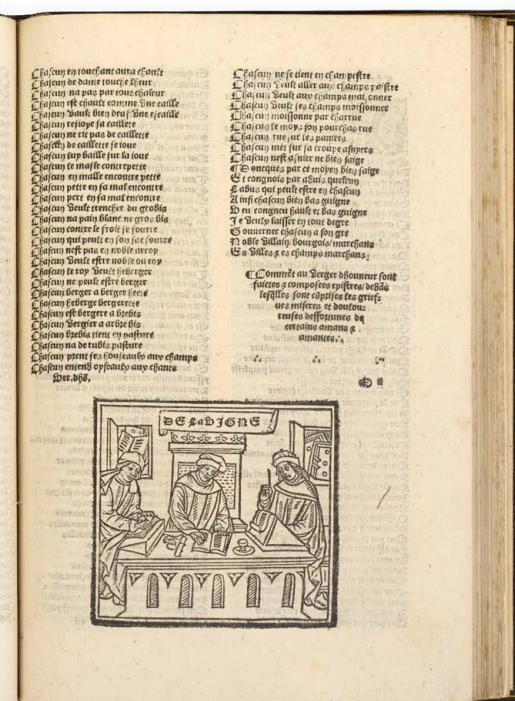 Chascun en touchant aura chault
Chascun de dame touche leur
Chascun na pas par tout chaleur
Chascun est chault comme vne caille
Chascun vault bien deux vne escaille
Chascun resioye sa caillette
Chascun ne rit pas de caillette
Chascun de caillette se ioue
Chascun luy baille sur la ioue
Chascun se masle contrepete
Chascun en malle encontre pette
Chascun pette en sa mal encontre
Chascun pert en sa mal encontre
Chascun veult trencher du grobis
Chascun na pain blanc ne gros bis
Chascun contre le froit se fourre
Chascun qui peult en son sac fourre
Chascun nest pas en noble arroy
Chascun veult estre noble ou roy
Chascun le roy veult heberger
Chascun ne peult estre berger
Chascun berger a berger
Chascun heberge bergerette
Chascun est bergere a brebis
Chascun vergier a arbre bis
Chascun brebis tient en pasture
Chascun na de brebis pasture
Chascun prent ses houseaulx aux champs
Chascun entend oyseaulx aux chants
Ver.dhō.
Chascun ne se tient en champestre
Chascun veult aller aux champs paistre
Chascun veult aux champs maisonner
Chascun veult ses champs moissonner
Chascun moissonne par charrue
Chascun le
Chascun rue sur les paniers
Chascun met sur sa croupe asnyers
Chascun nest asnier ne bien saige
Doncques par ce moyen bien saige
Et congnois par abuis quelcun
Labus qui peult estre en chascun
Ainsi chascun bien bas guigne
Veu congneu hault et bas guigne
Je veulx laisser en tout degre
Gouuerner chascun a son gre
Noble villain bourgois/marchans
Es villes & es champs marchans.
Commēt au vergier dhonneur sont
faictes & composees epistres/ dehās
lesqlles sont cōprises les griefz
ues miseres et doulou
reuses deffortunes de
certains amans &
amantes.
DE LA VIGNE